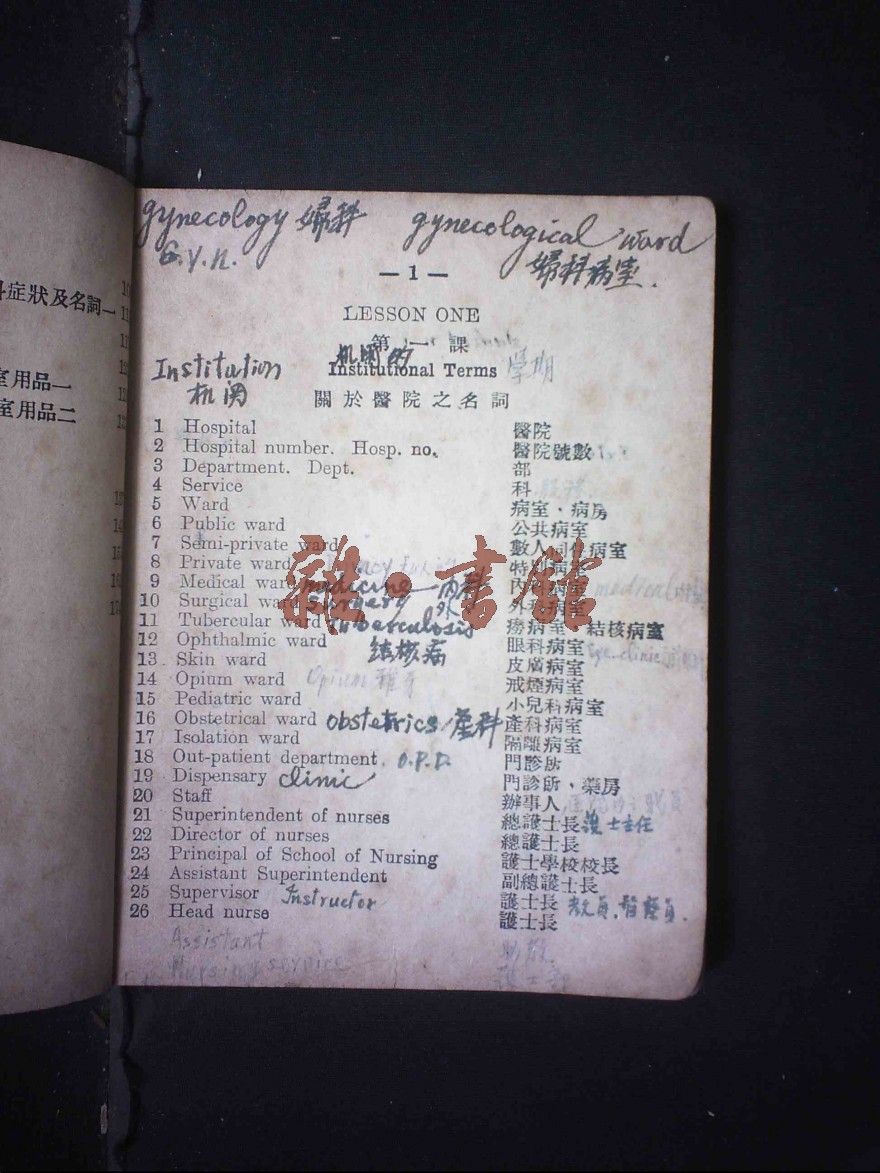 gynecology 婦科 gynecological ward
G.y.n. 婦科病室.
— 1 —
LESSON ONE
第一課
机関的
Institution Institutional Terms 学期
机関
關於醫院之名詞
症狀及名詞一
室用品一
室用品二
1 Hospital 醫院
2 Hospital number. Hosp. no. 醫院號數
3 Department. Dept. 部
4 Service 科
5 Ward 病室·病房
6 Public ward 公共病室
7 Semi-private ward 數人同住病室
8 Private ward 特別病室
9 Medical ward medicine 內科 病室 medical
10 Surgical ward surgery 外 外科病室
11 Tubercular ward tuberculosis 癆病室 結核病室
12 Ophthalmic ward 結核病 眼科病室 Eye clinic
13 Skin ward 皮膚病室
14 Opium ward Opium 戒煙病室
15 Pediatric ward 小兒科病室
16 Obstetrical ward obstetrics 產科 產科病室
17 Isolation ward 隔離病室
18 Out-patient department. O.P.D. 門診所
19 Dispensary clinic 門診所·藥房
20 Staff 辦事人
21 Superintendent of nurses 總護士長 護士主任
22 Director of nurses 總護士長
23 Principal of School of Nursing 護士學校校長
24 Assistant Superintendent 副總護士長
25 Supervisor Instructor 護士長 教員,
26 Head nurse 護士長
Assistant 助教
Nursing service 護士部
雜·書館